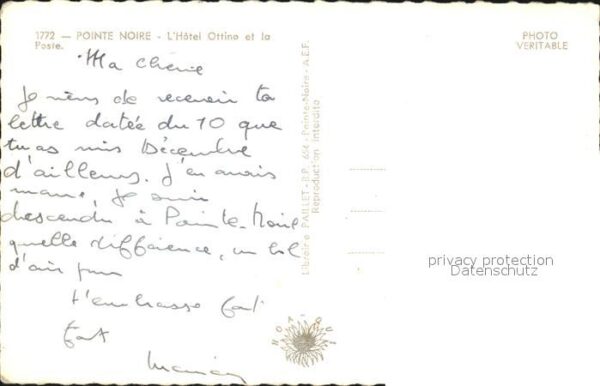 1772 — POINTE NOIRE - L'Hôtel Ottino et la
Poste.
PHOTO
VERITABLE
Ma chérie
Je viens de recevoir ta
lettre datée du 10 que
tu as mis Décembre
d'ailleurs. J'en avais
marre, je suis
descendu à Pointe-Noire
quelle différence, un bol
d'air pur
t'embrasse fort
fort
Librairie PAILLET - B.P. 654 - Pointe-Noire - A.E.F.
Reproduction interdite
privacy protection
Datenschutz